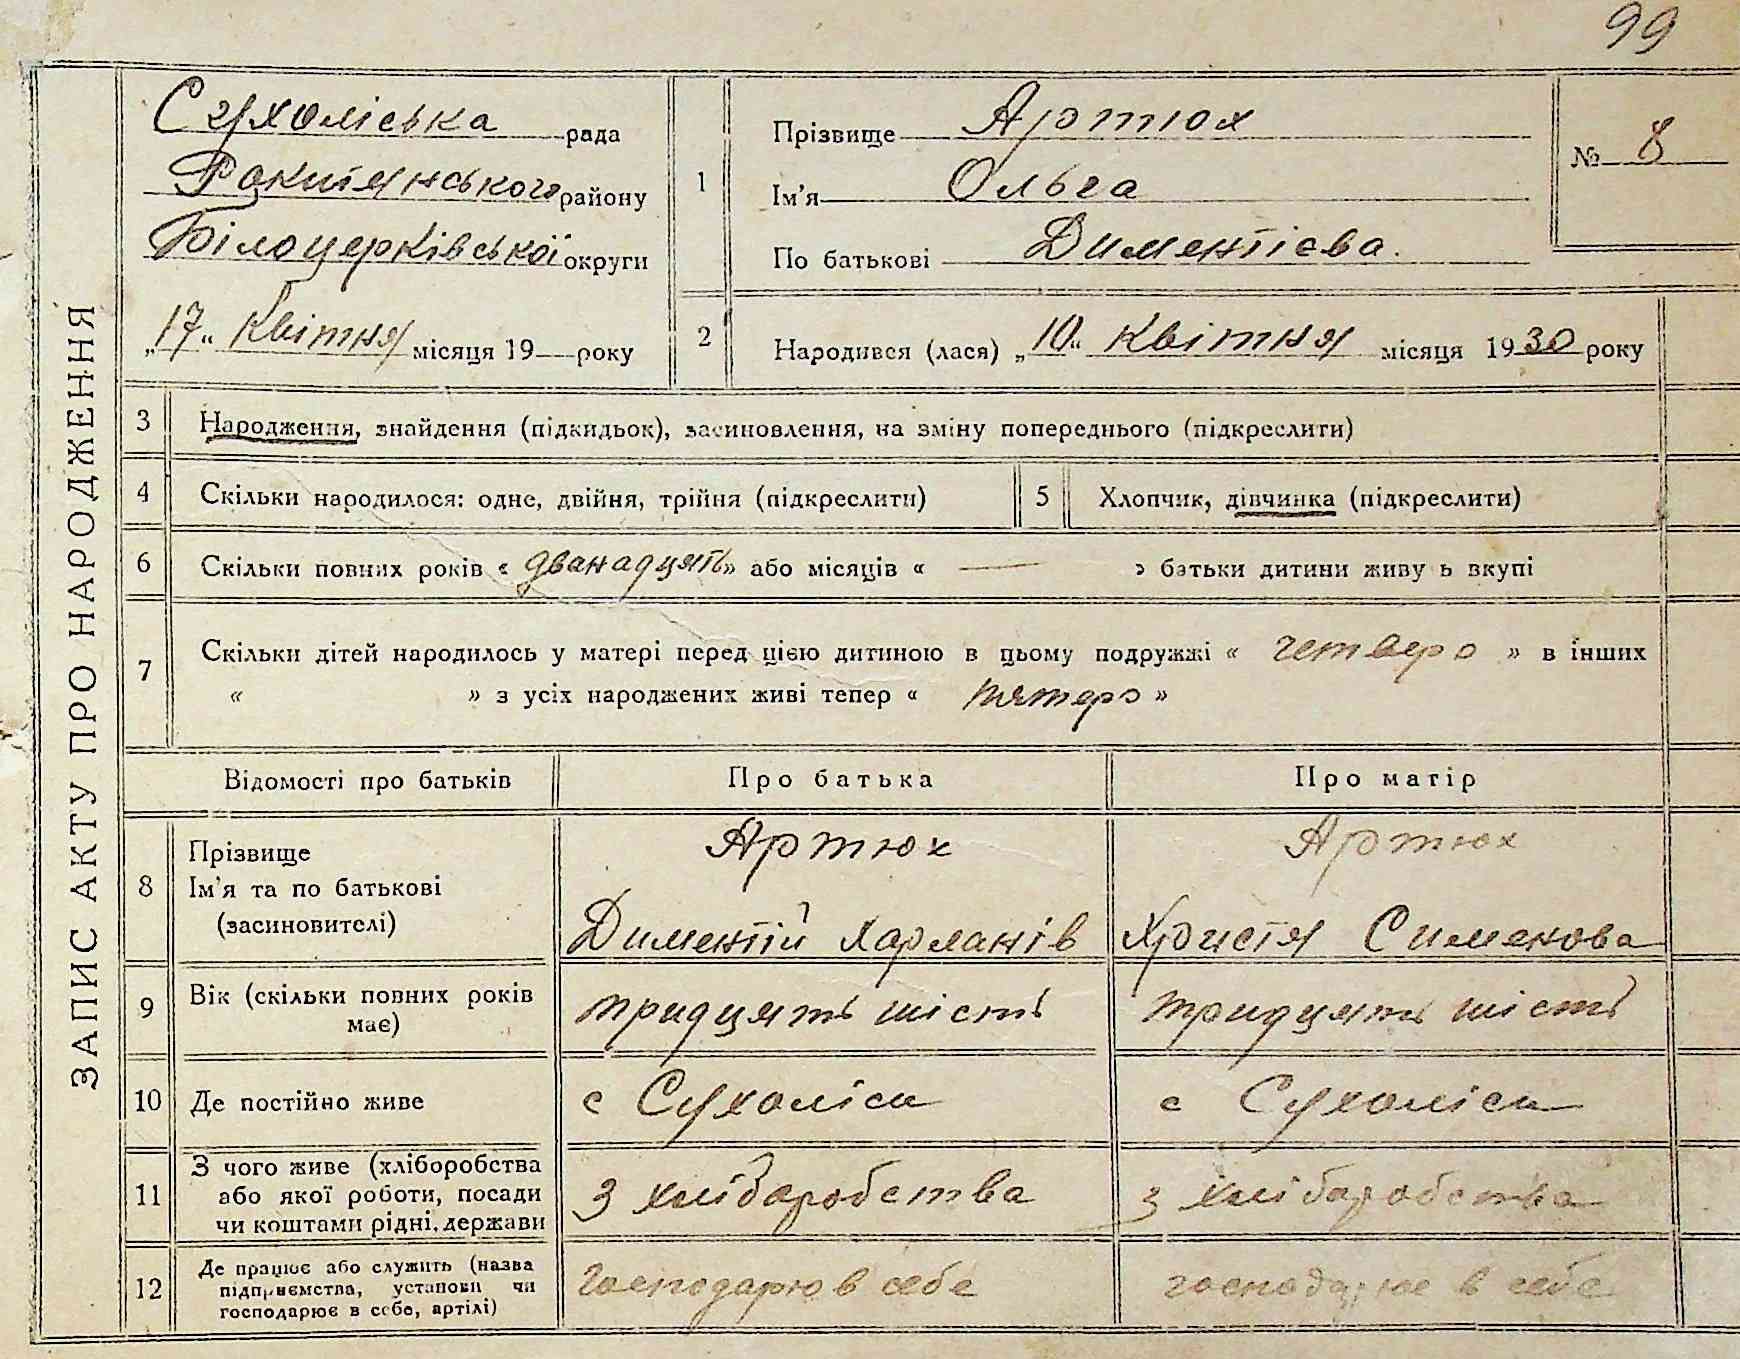 99
Сухоліська рада
Рокитянського району
Білоцерківської округи
„17“ Квітня місяця 19 року
ЗАПИС АКТУ ПРО НАРОДЖЕННЯ
1
Прізвище Артюх
Ім'я Ольга
По батькові Диментієва.
№ 8
2
Народився (лася) „10“ квітня місяця 1930 року
3 Народження, знайдення (підкидьок), засиновлення, на зміну попереднього (підкреслити)
4 Скільки народилося: одне, двійня, трійня (підкреслити) 5 Хлопчик, дівчинка (підкреслити)
6 Скільки повних років « дванадцять» або місяців « — » батьки дитини живу ь вкупі
7 Скільки дітей народилось у матері перед цією дитиною в цьому подружжі « четверо » в інших
« » з усіх народжених живі тепер « пятеро »
Відомості про батьків Про батька Про матір
8 Прізвище Артюх Артюх
Ім'я та по батькові
(засиновителі) Диментій Харланів Христя Сименова
9 Вік (скільки повних років має) тридцять шість тридцять шість
10 Де постійно живе с Сухоліси с Сухоліси
11 З чого живе (хліборобства
або якої роботи, посади з хліборобства з хліборобства
чи коштами рідні, держави
12 Де працює або служить (назва
підприємства, установи чи господарює в себе господарює в себе
господарює в себе, артілі)